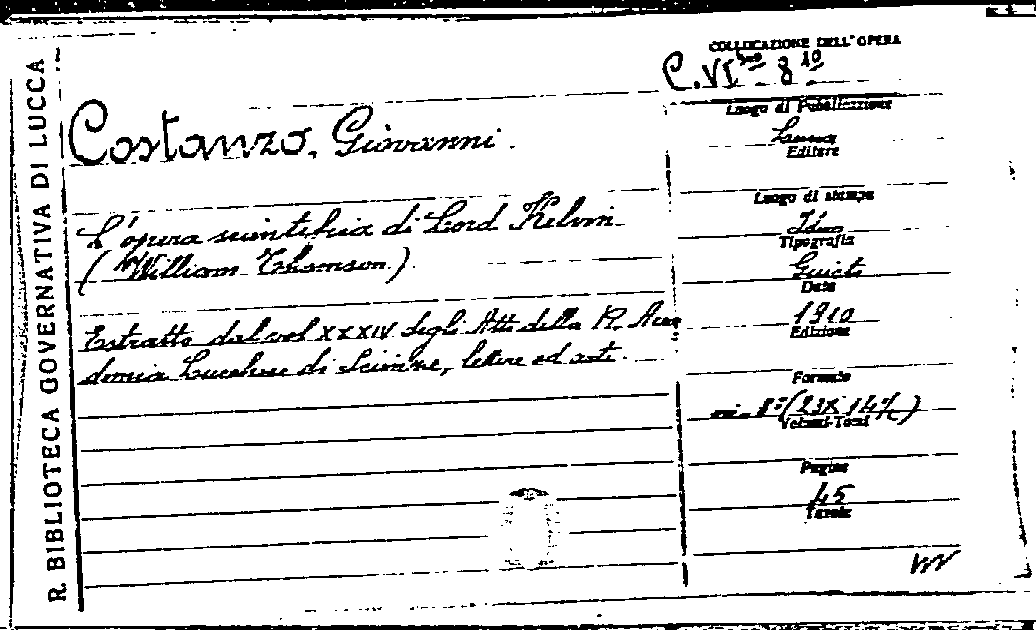 R. BIBLIOTECA GOVERNATIVA DI LUCCA
COLLOCAZIONE DELL'OPERA
C. VI 8 10
Costanzo, Giovanni.
L'opera scientifica di Lord Kelvin
(William Thomson)
Estratto dal vol XXXIV degli Atti della R. Acca
demia Lucchese di Scienze, lettere ed arti.
Luogo di Pubblicazione
Lucca
Editore
Luogo di stampa
Idem
Tipografia
Giusti
Data
1910
Edizione
Formato
in-8º (23X14½)
Volumi-Tomi
Pagine
45
Tavole